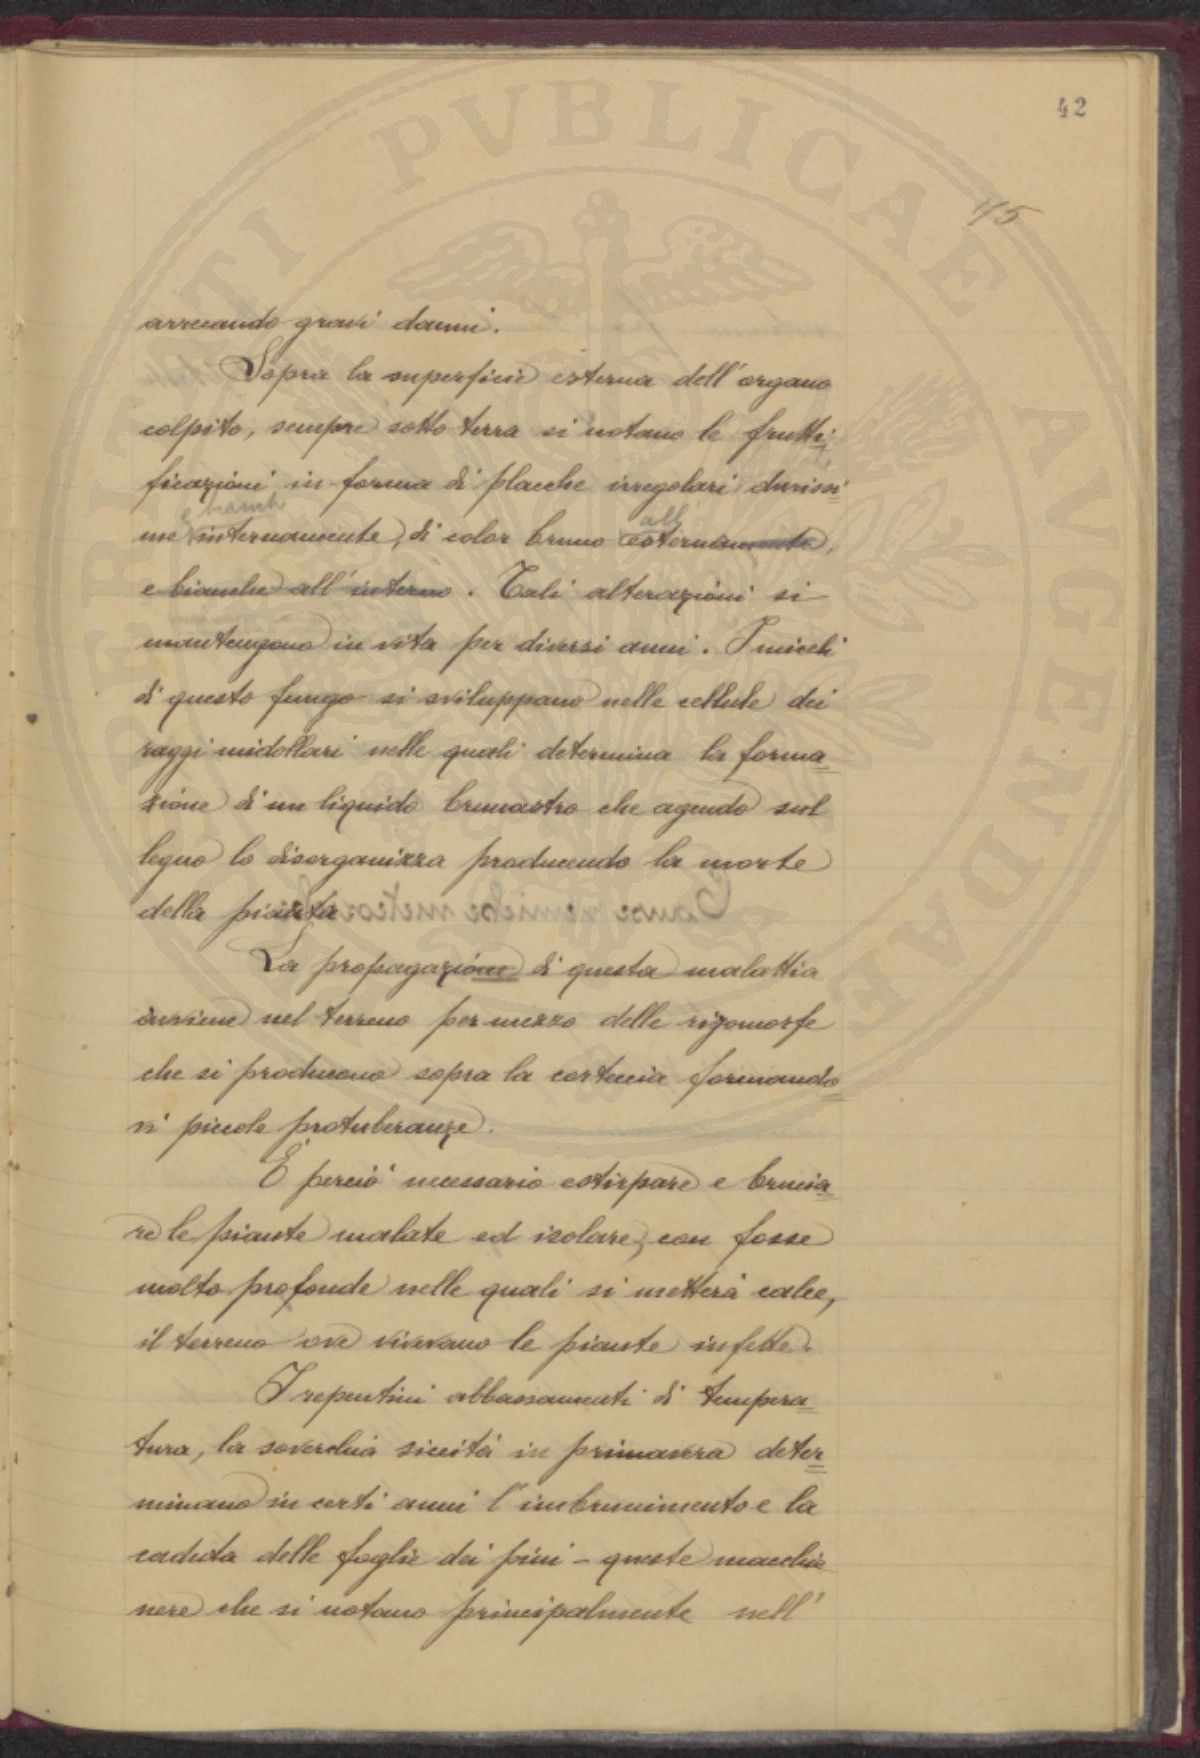 42
75
arrecando gravi danni.
Sopra la superficie esterna dell'organo
colpito, sempre sotto terra si notano le frutti=
ficazioni in forma di placche irregolari durissi=
e bianche
me internamente, di color bruno esternamente,
all'
e bianche all'interno. Tali alterazioni si
mantengono in vita per diversi anni. I miceli
di questo fungo si sviluppano nelle cellule dei
raggi midollari nelle quali determina la forma=
zione di un liquido brunastro che agendo sul
legno lo disorganizza producendo la morte
della pianta.
La propagazione di questa malattia
avviene nel terreno per mezzo delle rizomorfe
che si producono sopra la corteccia formando=
vi piccole protuberanze.
È perciò necessario estirpare e brucia=
re le piante malate ed isolare, con fosse
molto profonde nelle quali si metterà calce,
il terreno ove vivevano le piante infette.
I repentini abbassamenti di tempera=
tura, la soverchia siccità in primavera deter=
minano in certi anni l'imbrunimento e la
caduta delle foglie dei pini - queste macchie
nere che si notano principalmente nell'
PVBLICAE
AVGENDAE